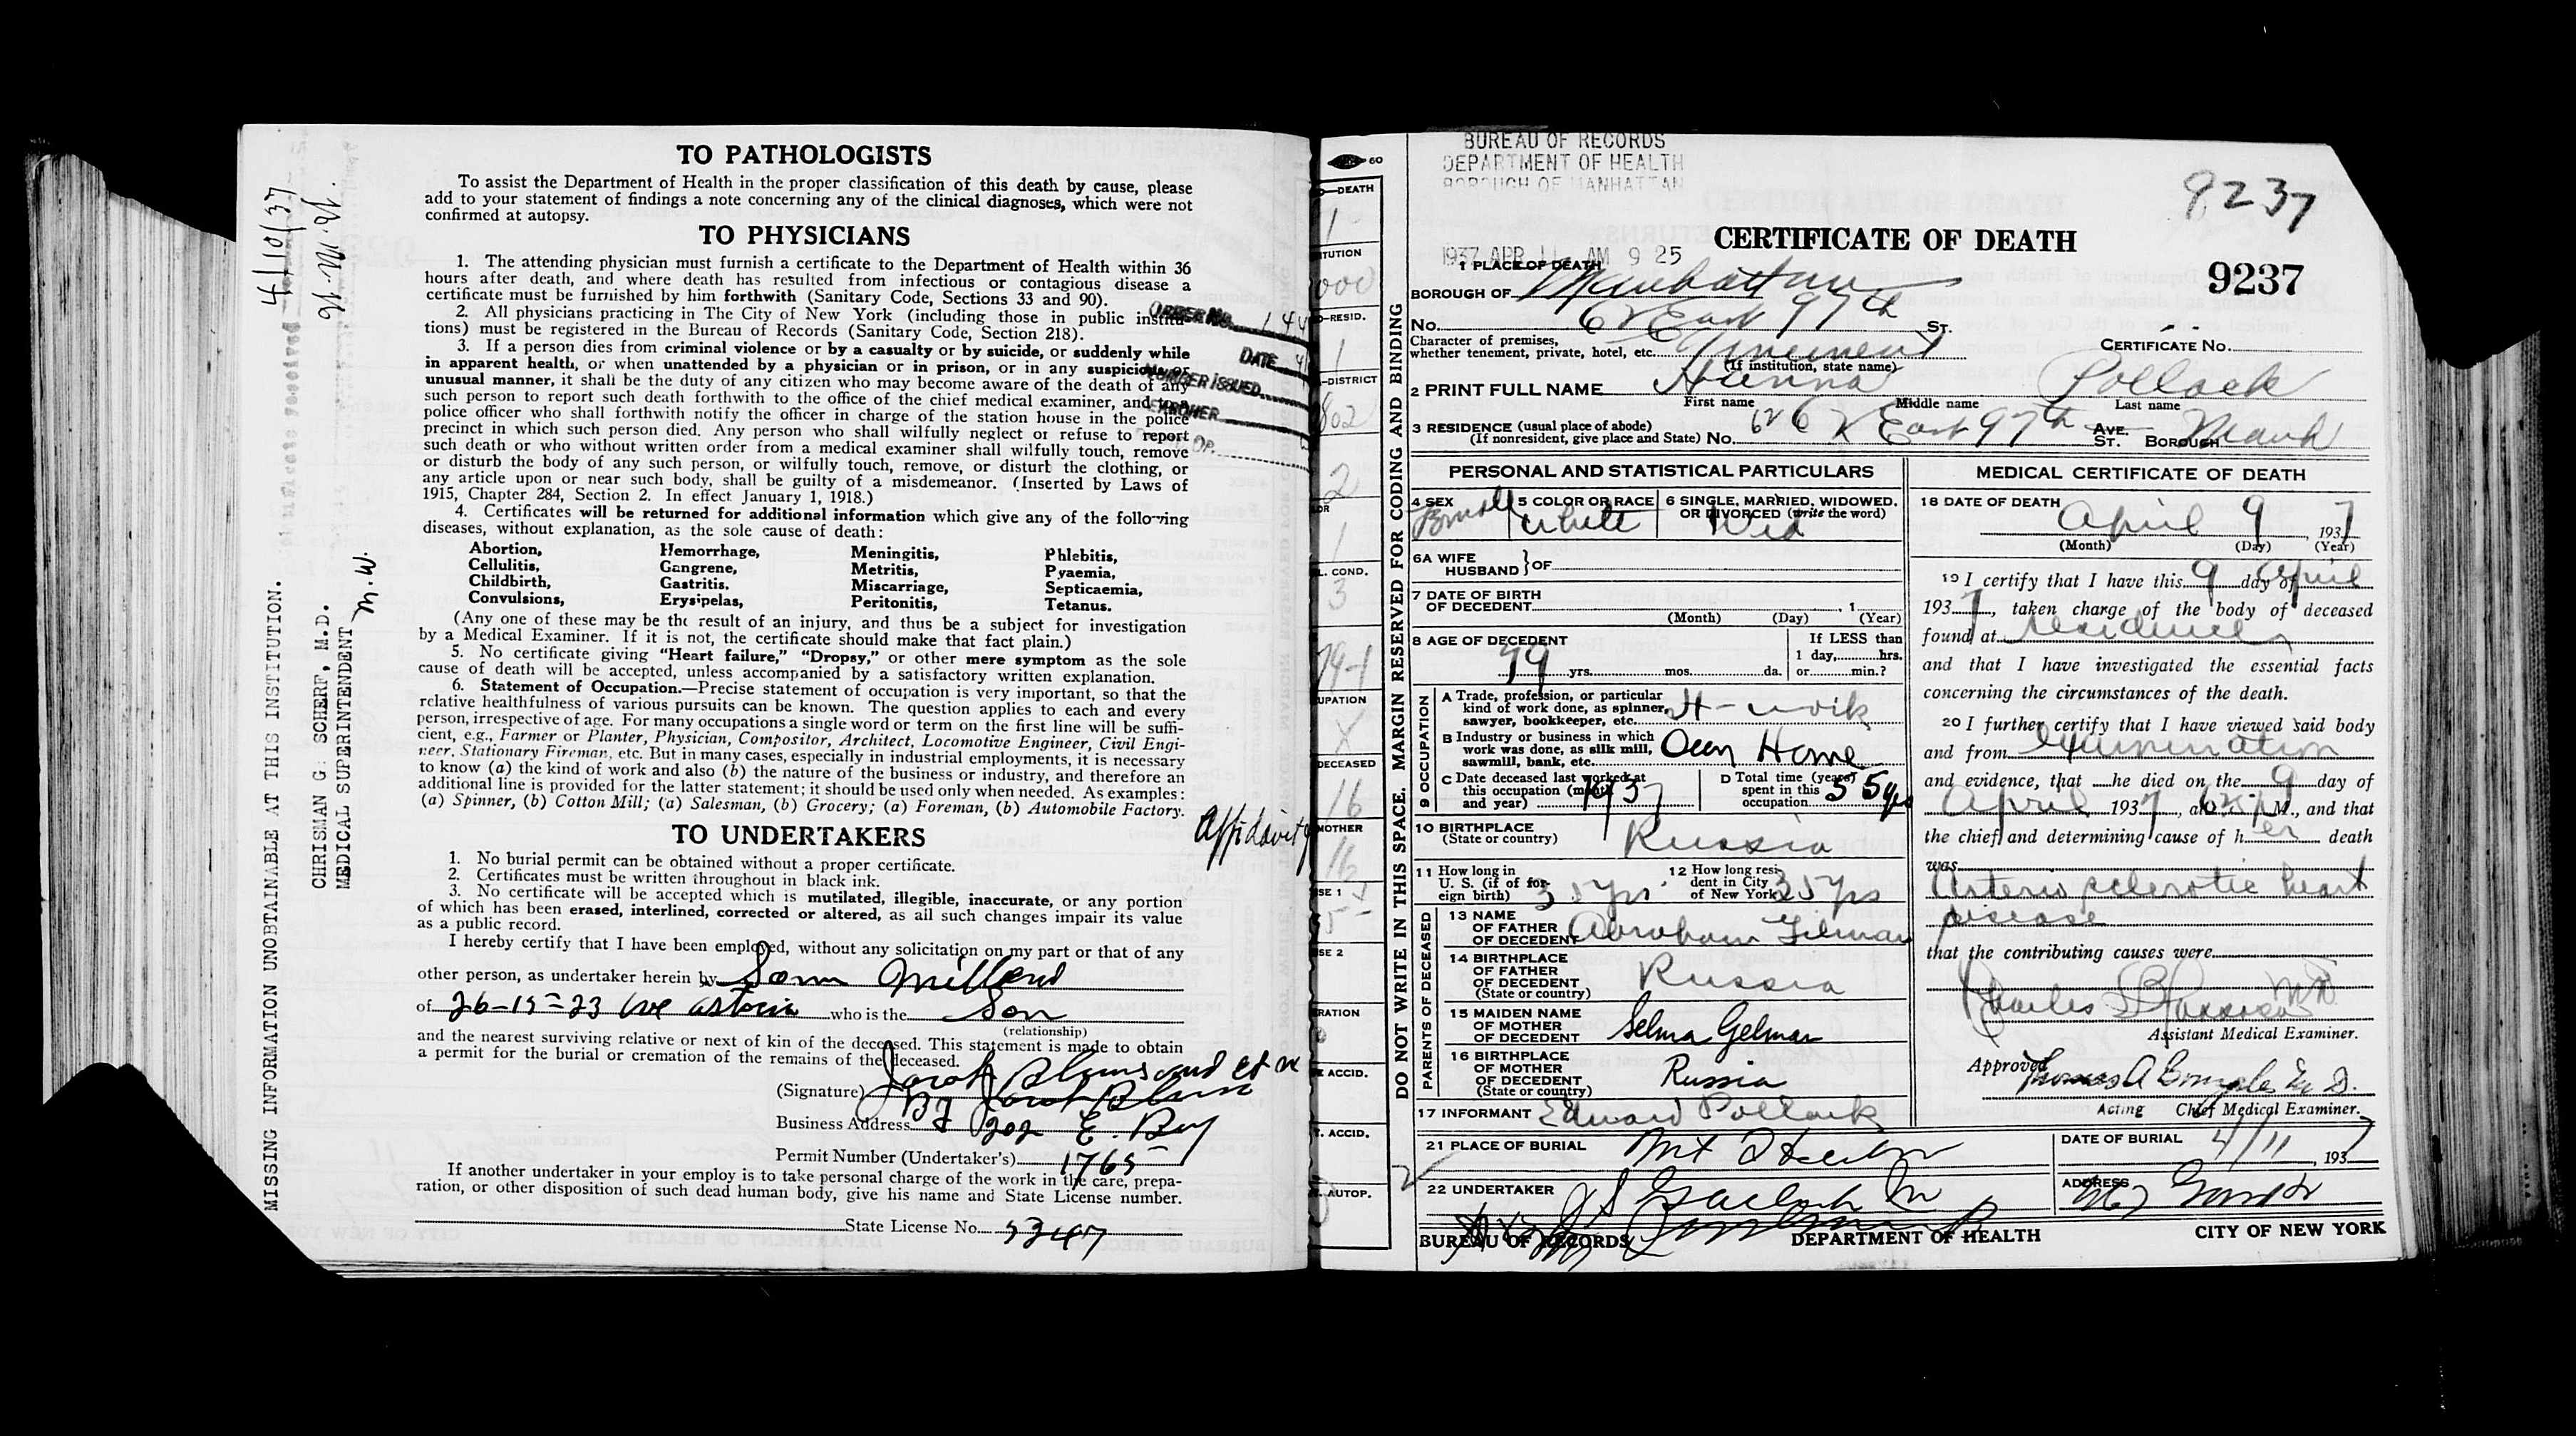 4/10/37
MISSING INFORMATION UNOBTAINABLE AT THIS INSTITUTION.
CHRISMAN G. SCHERF, M.D.
MEDICAL SUPERINTENDENT
M.W.
TO PATHOLOGISTS
To assist the Department of Health in the proper classification of this death by cause, please
add to your statement of findings a note concerning any of the clinical diagnoses, which were not
confirmed at autopsy.
TO PHYSICIANS
1. The attending physician must furnish a certificate to the Department of Health within 36
hours after death, and where death has resulted from infectious or contagious disease a
certificate must be furnished by him forthwith (Sanitary Code, Sections 33 and 90).
2. All physicians practicing in The City of New York (including those in public institu-
tions) must be registered in the Bureau of Records (Sanitary Code, Section 218).
3. If a person dies from criminal violence or by a casualty or by suicide, or suddenly while
in apparent health, or when unattended by a physician or in prison, or in any suspicious or
unusual manner, it shall be the duty of any citizen who may become aware of the death of any
such person to report such death forthwith to the office of the chief medical examiner, and to a
police officer who shall forthwith notify the officer in charge of the station house in the police
precinct in which such person died. Any person who shall wilfully neglect or refuse to report
such death or who without written order from a medical examiner shall wilfully touch, remove
or disturb the body of any such person, or wilfully touch, remove, or disturb the clothing, or
any article upon or near such body, shall be guilty of a misdemeanor. (Inserted by Laws of
1915, Chapter 284, Section 2. In effect January 1, 1918.)
4. Certificates will be returned for additional information which give any of the following
diseases, without explanation, as the sole cause of death:
Abortion, Hemorrhage, Meningitis, Phlebitis,
Cellulitis, Gangrene, Metritis, Pyaemia,
Childbirth, Gastritis, Miscarriage, Septicaemia,
Convulsions, Erysipelas, Peritonitis, Tetanus.
(Any one of these may be the result of an injury, and thus be a subject for investigation
by a Medical Examiner. If it is not, the certificate should make that fact plain.)
5. No certificate giving "Heart failure," "Dropsy," or other mere symptom as the sole
cause of death will be accepted, unless accompanied by a satisfactory written explanation.
6. Statement of Occupation.—Precise statement of occupation is very important, so that the
relative healthfulness of various pursuits can be known. The question applies to each and every
person, irrespective of age. For many occupations a single word or term on the first line will be suffi-
cient, e.g., Farmer or Planter, Physician, Compositor, Architect, Locomotive Engineer, Civil Engi-
neer, Stationary Fireman, etc. But in many cases, especially in industrial employments, it is necessary
to know (a) the kind of work and also (b) the nature of the business or industry, and therefore an
additional line is provided for the latter statement; it should be used only when needed. As examples:
(a) Spinner, (b) Cotton Mill; (a) Salesman, (b) Grocery; (a) Foreman, (b) Automobile Factory.
ORDER NO.
DATE
NUMBER ISSUED
Affidavit
TO UNDERTAKERS
1. No burial permit can be obtained without a proper certificate.
2. Certificates must be written throughout in black ink.
3. No certificate will be accepted which is mutilated, illegible, inaccurate, or any portion
of which has been erased, interlined, corrected or altered, as all such changes impair its value
as a public record.
I hereby certify that I have been employed, without any solicitation on my part or that of any
other person, as undertaker herein by Sam
of 26-15-23 Ave Astoria who is the Son
(relationship)
and the nearest surviving relative or next of kin of the deceased. This statement is made to obtain
a permit for the burial or cremation of the remains of the deceased.
(Signature) Jacob
By Jacob
Business Address 202 E. Bwy
Permit Number (Undertaker's) 1765
If another undertaker in your employ is to take personal charge of the work in the care, prepa-
ration, or other disposition of such dead human body, give his name and State License number.
State License No. 5347
60
DO NOT WRITE IN THIS SPACE. MARGIN RESERVED FOR CODING AND BINDING
BUREAU OF RECORDS
DEPARTMENT OF HEALTH
BOROUGH OF MANHATTAN
9237
CERTIFICATE OF DEATH
1937 APR 11 AM 9 25
9237
1 PLACE OF DEATH
BOROUGH OF Manhattan
No. 62 East 97th St.
Character of premises,
whether tenement, private, hotel, etc. Tenement
(If institution, state name)
CERTIFICATE No.
2 PRINT FULL NAME Hanna Pollack
First name Middle name Last name
3 RESIDENCE (usual place of abode)
(If nonresident, give place and State) No. 62 East 97th Ave. St. BOROUGH Manh
PERSONAL AND STATISTICAL PARTICULARS
4 SEX Female
5 COLOR OR RACE White
6 SINGLE, MARRIED, WIDOWED, OR DIVORCED (write the word) Wid
6A WIFE HUSBAND } OF
7 DATE OF BIRTH OF DECEDENT , 1
(Month) (Day) (Year)
8 AGE OF DECEDENT 79 yrs. mos. da.
If LESS than 1 day, hrs. or min.?
9 OCCUPATION
A Trade, profession, or particular kind of work done, as spinner, sawyer, bookkeeper, etc. H-work
B Industry or business in which work was done, as silk mill, sawmill, bank, etc. Own Home
C Date deceased last worked at this occupation (month and year) 1937
D Total time (years) spent in this occupation 55 yrs
10 BIRTHPLACE (State or country) Russia
11 How long in U. S. (if of foreign birth) 35 yrs
12 How long resident in City of New York 35 yrs
PARENTS OF DECEASED
13 NAME OF FATHER OF DECEDENT Abraham
14 BIRTHPLACE OF FATHER OF DECEDENT (State or country) Russia
15 MAIDEN NAME OF MOTHER OF DECEDENT Selma Gelman
16 BIRTHPLACE OF MOTHER OF DECEDENT (State or country) Russia
17 INFORMANT Edward Pollack
MEDICAL CERTIFICATE OF DEATH
18 DATE OF DEATH April 9, 1937
(Month) (Day) (Year)
19 I certify that I have this 9 day of April
1937, taken charge of the body of deceased
found at residence
and that I have investigated the essential facts
concerning the circumstances of the death.
20 I further certify that I have viewed said body
and from examination
and evidence, that he died on the 9 day of
April 1937, at P M., and that
the chief and determining cause of her death
was
Arterio sclerotic heart
disease
that the contributing causes were
Charles
Assistant Medical Examiner.
Approved Thomas A Gonzales M. D.
Acting Chief Medical Examiner.
21 PLACE OF BURIAL Mt Hebron
DATE OF BURIAL 4/11, 1937
22 UNDERTAKER J S Garlick
ADDRESS
BUREAU OF RECORDS DEPARTMENT OF HEALTH CITY OF NEW YORK